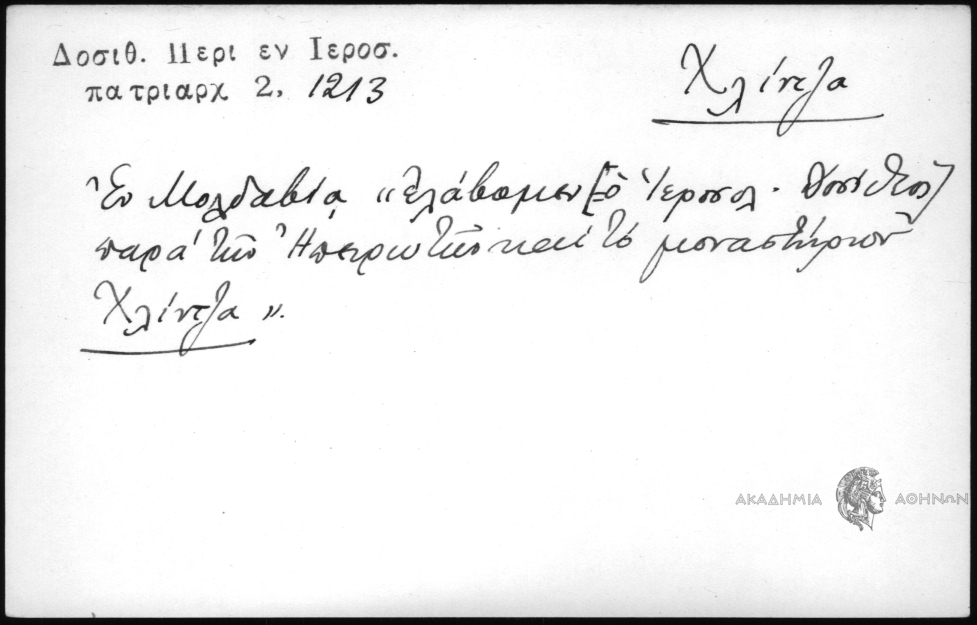 Δοσιθ. Περι εν Ιεροσ.
πατριαρχ 2, 1213
Χλίντζα
Ἐν Μολδαβίᾳ "ἐλάβομεν [ὁ Ἱεροσολ. Δοσίθεος]
παρὰ τῶν Ἠπειρωτῶν καὶ τὸ μοναστήριον
Χλίντζα".
ΑΚΑΔΗΜΙΑ ΑΘΗΝΩΝ